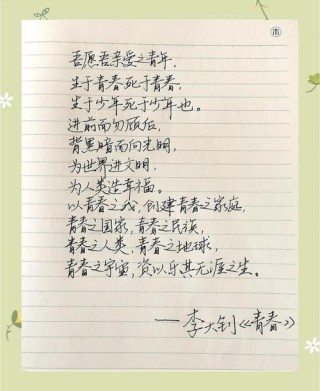 ㊍
吾愿吾亲爱之青年，
生于青春死于青春，
生于少年死于少年也。
进前而勿顾后，
背黑暗而向光明，
为世界进文明，
为人类造幸福。
以青春之我，创建青春之家庭，
青春之国家，青春之民族，
青春之人类，青春之地球，
青春之宇宙，资以乐其无涯之生。
——李大钊《青春》